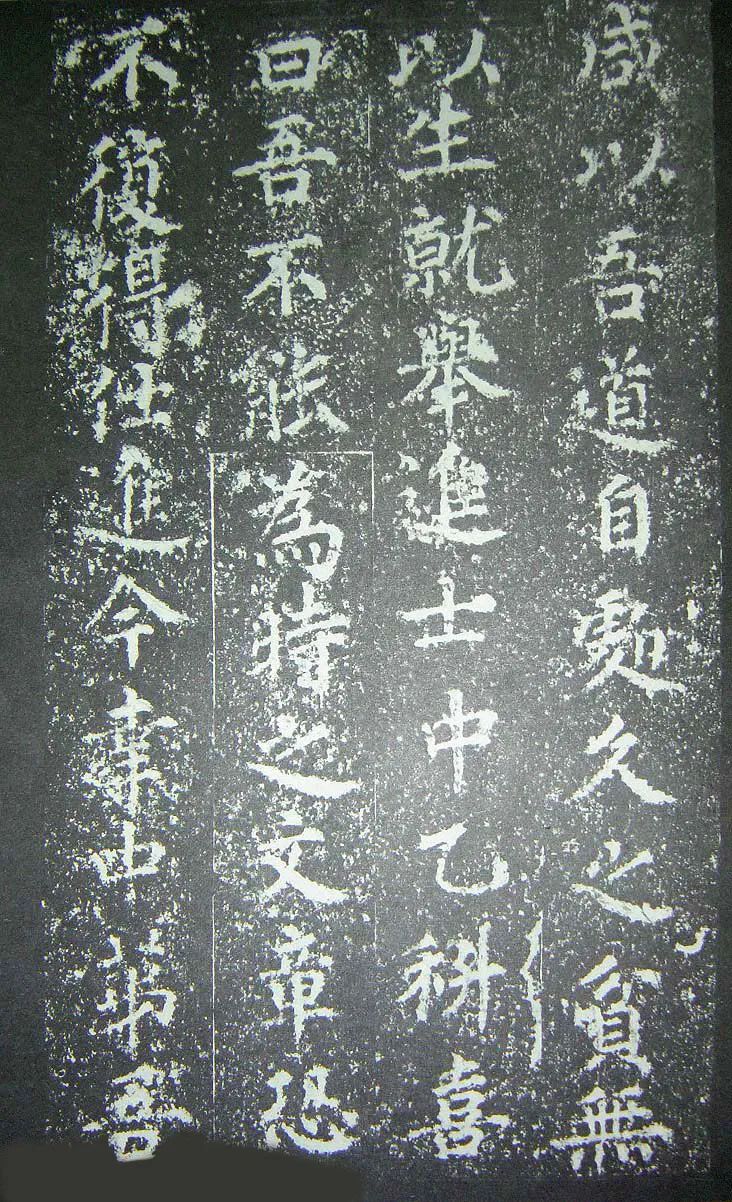 咸以吾道自處久之貧無
以生就舉進士中乙科喜
曰吾不能為時之文章恐
不復得仕進今幸中第吾